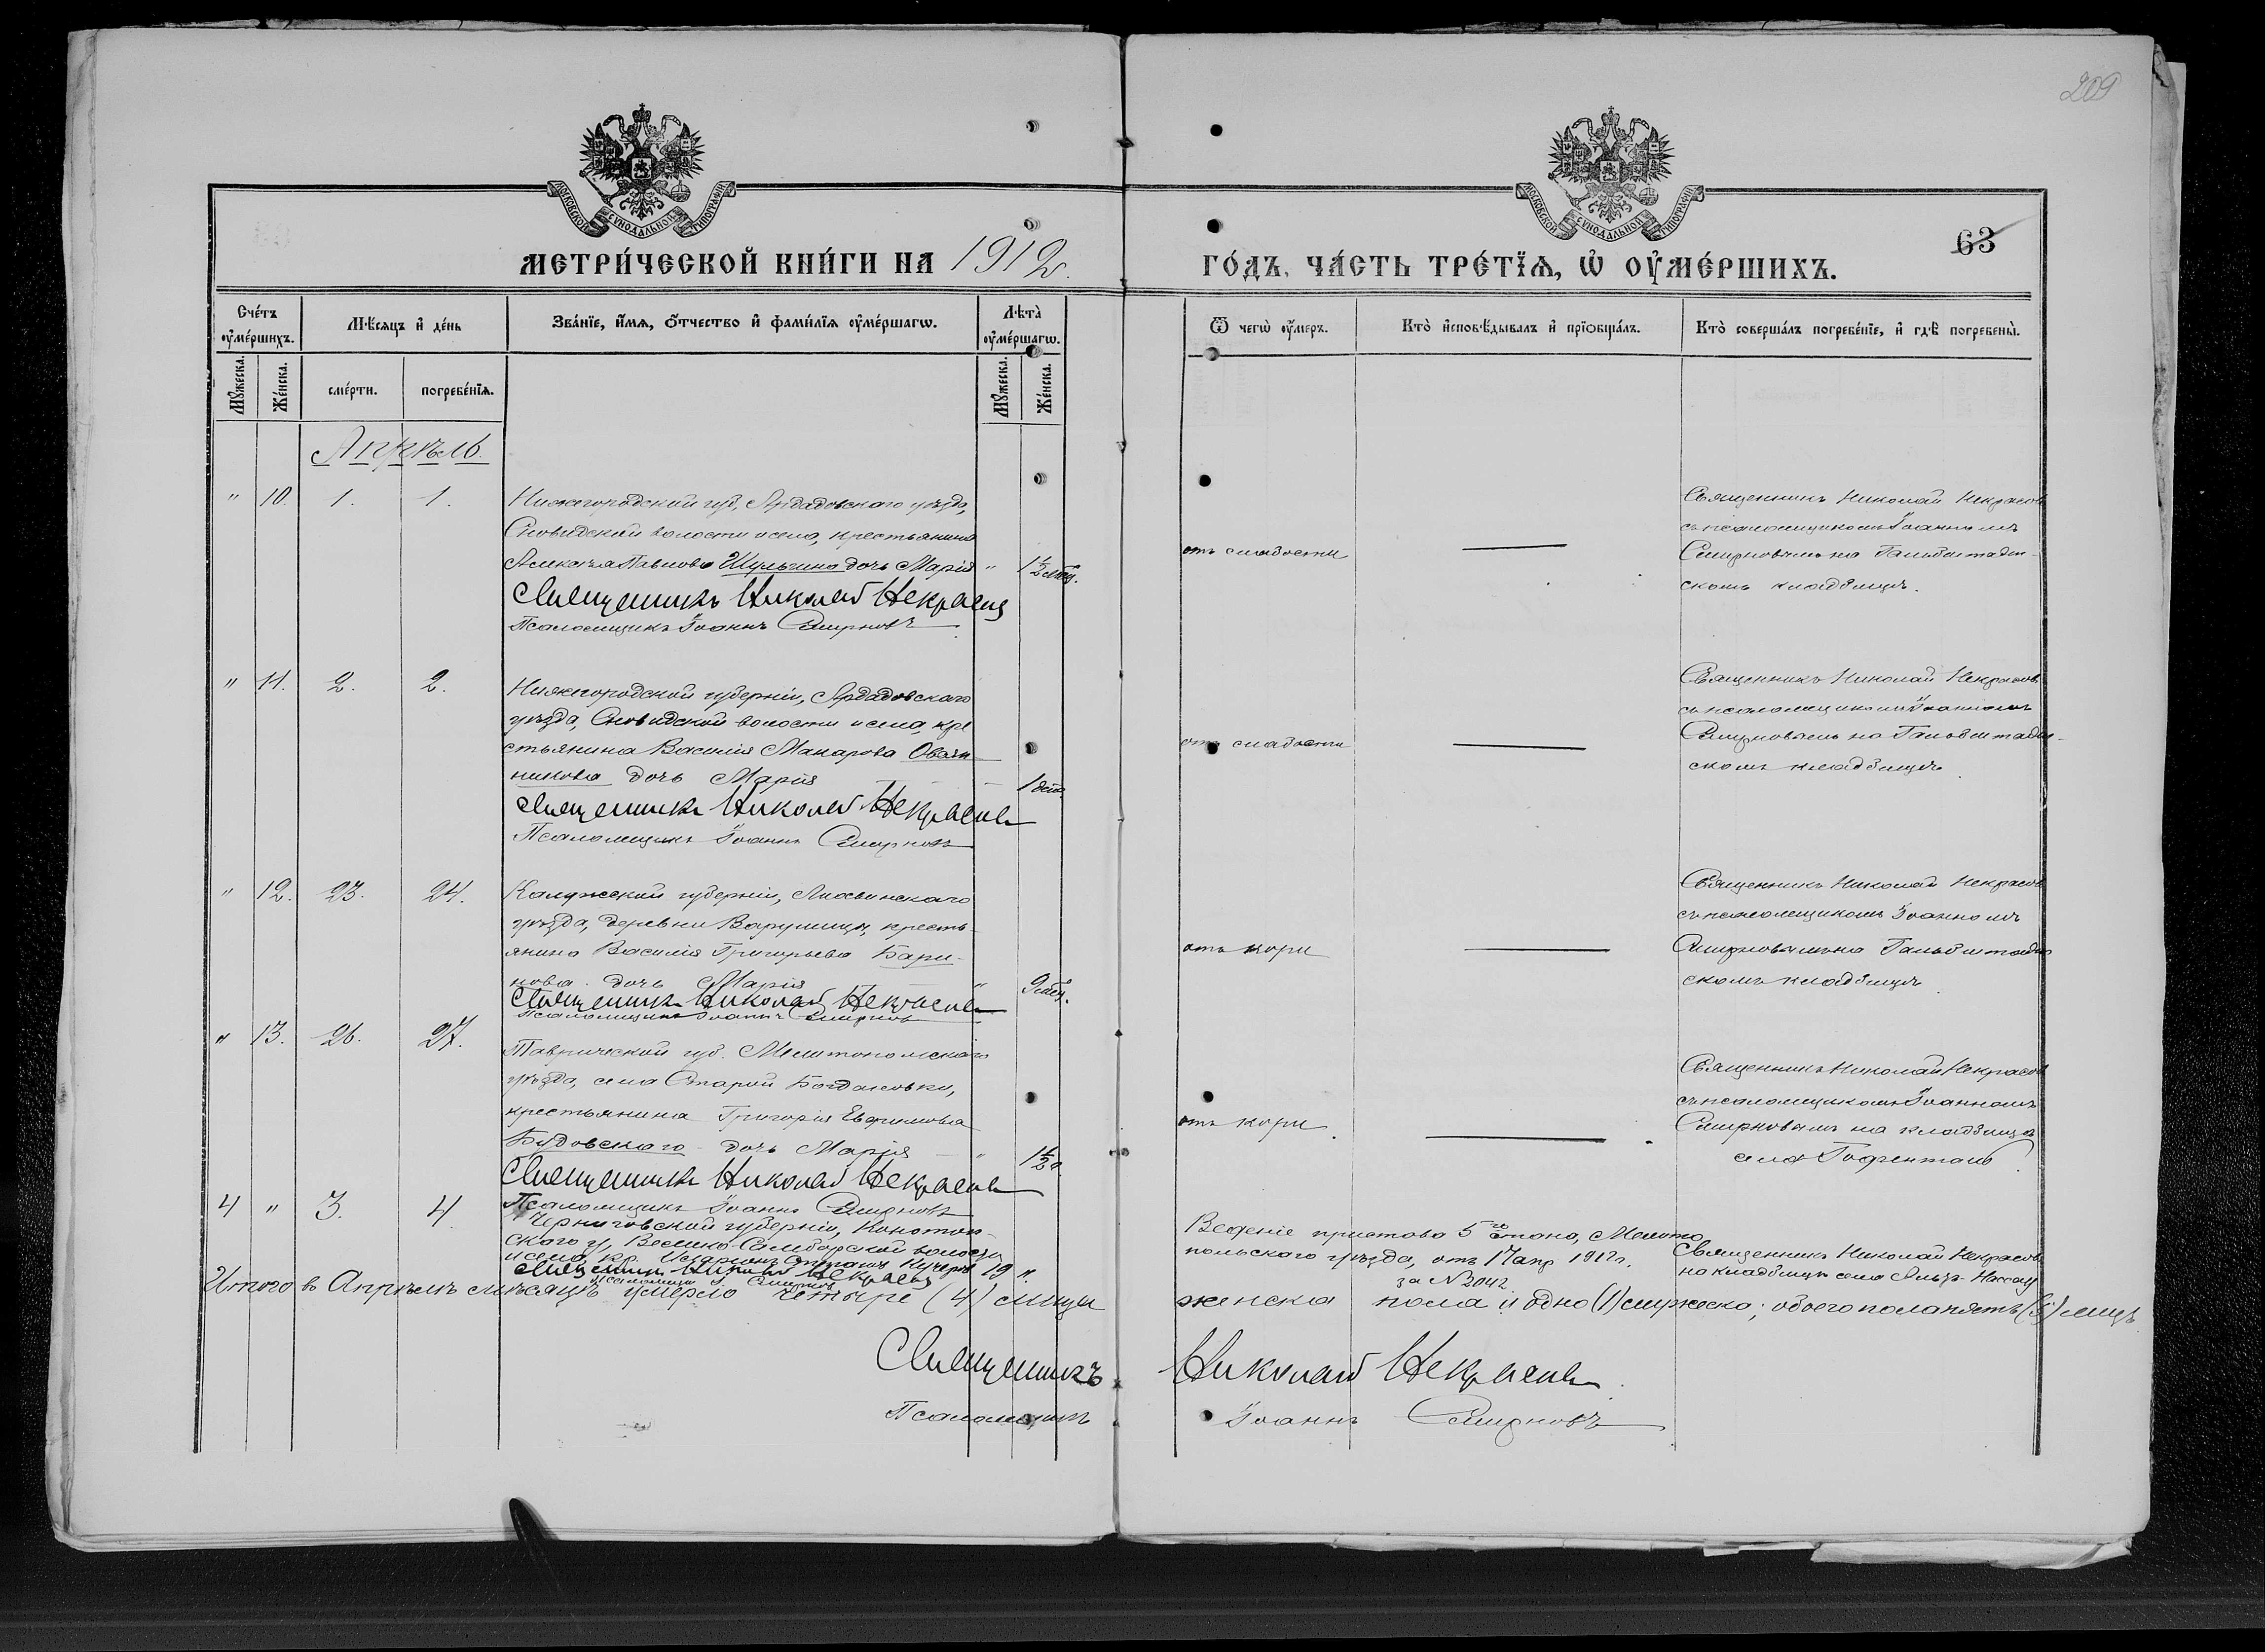 209
63
МОСКОВСКОЙ СѴНОДАЛЬНОЙ ТИПОГРАФІИ
МОСКОВСКОЙ СѴНОДАЛЬНОЙ ТИПОГРАФІИ
МЕТРИ́ЧЕСКОЙ КНИ́ГИ НА 1912
ГО́ДЪ, ЧА́СТЬ ТРЕ́ТЇѦ, Ѡ҆ ОУ҆МЕ́РШИХЪ.
Сче́тъ оу҆ме́ршихъ.
Мѣ́сяцъ и҆ де́нь
Зва́нїе, и҆́мѧ, ѻ҆́тчество и҆ фами́лїѧ оу҆ме́ршагѡ.
Лѣта̀ оу҆ме́ршагѡ.
Ѿ чегѡ̀ оу҆́меръ.
Кто̀ и҆сповѣ́дывалъ и҆ прїѡбща́лъ.
Кто̀ соверша́лъ погребе́нїе, и҆ гдѣ̀ погребены̀.
Мꙋ́жеска. Же́нска. сме́рти. погребе́нїѧ. Мꙋ́жеска. Же́нска.
Апрѣль.
" 10. 1. 1.
Нижегородской губ, Ардадовскаго уѣзда,
волости и села, крестьянина
Алексѣя Павлова Шульгина дочь Марія " 1½
Священникъ Николай Некрасовъ
Псаломщикъ Іоаннъ Смирновъ
отъ слабости
Священникъ Николай Некрасовъ
съ псаломщикомъ Іоанномъ
Смирновымъ на Гальбштадт-
скомъ кладбищѣ.
" 11. 2. 2.
Нижегородской губерніи, Ардадовскаго
уѣзда, волости и села, кре
стьянина Василія Макарова Овчин-
никова дочь Марія — 1
Священникъ Николай Некрасовъ
Псаломщикъ Іоаннъ Смирновъ
отъ слабости
Священникъ Николай Некрасовъ
съ псаломщикомъ Іоанномъ
Смирновымъ на Гальбштадт-
скомъ кладбищѣ
" 12. 23. 24.
Калужской губерніи, Лихвинскаго
уѣзда, деревни кресть-
янина Василія Григорьева Бари-
нова дочь Марія " 9 мѣс.
Священникъ Николай Некрасовъ
Псаломщикъ Іоаннъ Смирновъ
отъ кори
Священникъ Николай Некрасовъ
съ псаломщикомъ Іоанномъ
Смирновымъ на Гальбштадт
скомъ кладбищѣ
" 13. 26. 27.
Таврической губ. Мелитопольскаго
уѣзда, села Старой Богдановки,
крестьянина Григорія Евфимова
Будовскаго дочь Марія " 1½
Священникъ Николай Некрасовъ
Псаломщикъ Іоаннъ Смирновъ
отъ кори
Священникъ Николай Некрасовъ
съ псаломщикомъ Іоанномъ
Смирновымъ на кладбищѣ
села
4 " 3. 4.
Черниговской губерніи, Конотоп-
скаго у, Велико-Самборской волости
и села, кр. Кучеровъ 19 "
Священникъ Николай Некрасовъ
Псаломщикъ І. Смирновъ
пристава 5го стана, Мелито
польскаго уѣзда, отъ 17 апр 1912 г.
за № 2042
Священникъ Николай Некрасовъ
на кладбищѣ села Альтъ-Нассау
Итого въ Апрѣлѣ мѣсяцѣ умерло четыре (4) лица
женска пола и одно (1) мужеска; обоего пола пять (5) лицъ
Священникъ Николай Некрасовъ
Псаломщикъ Іоаннъ Смирновъ